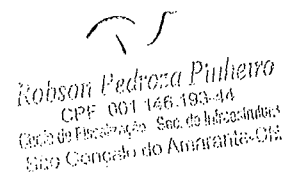 Robson Pedroza Pinheiro
CPF 001 146.193-44
de Fiscalização Sec. de Infraestrutura
São Gonçalo do Amarante-CE